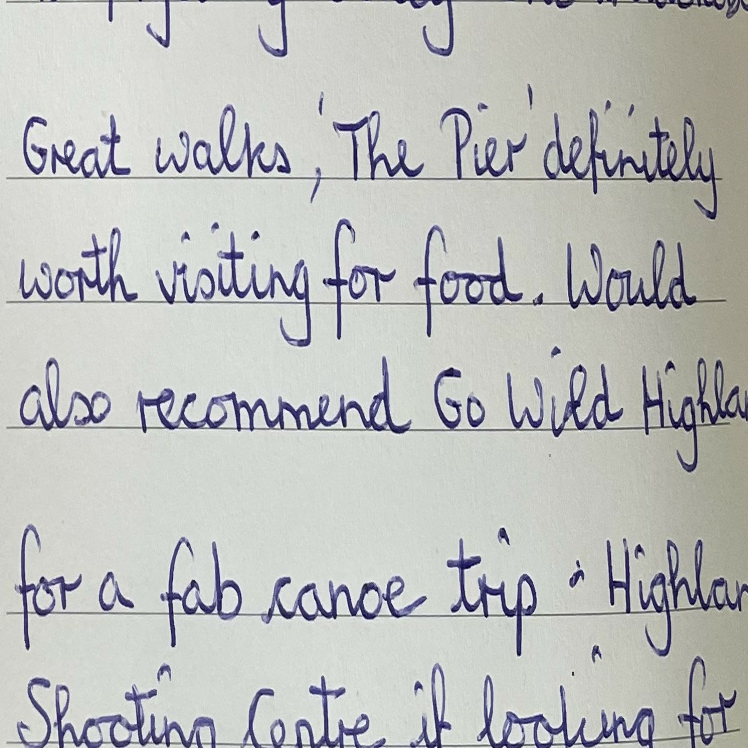 Great walks, 'The Pier' definitely
worth visiting for food. Would
also recommend Go Wild Highla
for a fab canoe trip + Highlan
Shooting Centre if looking for